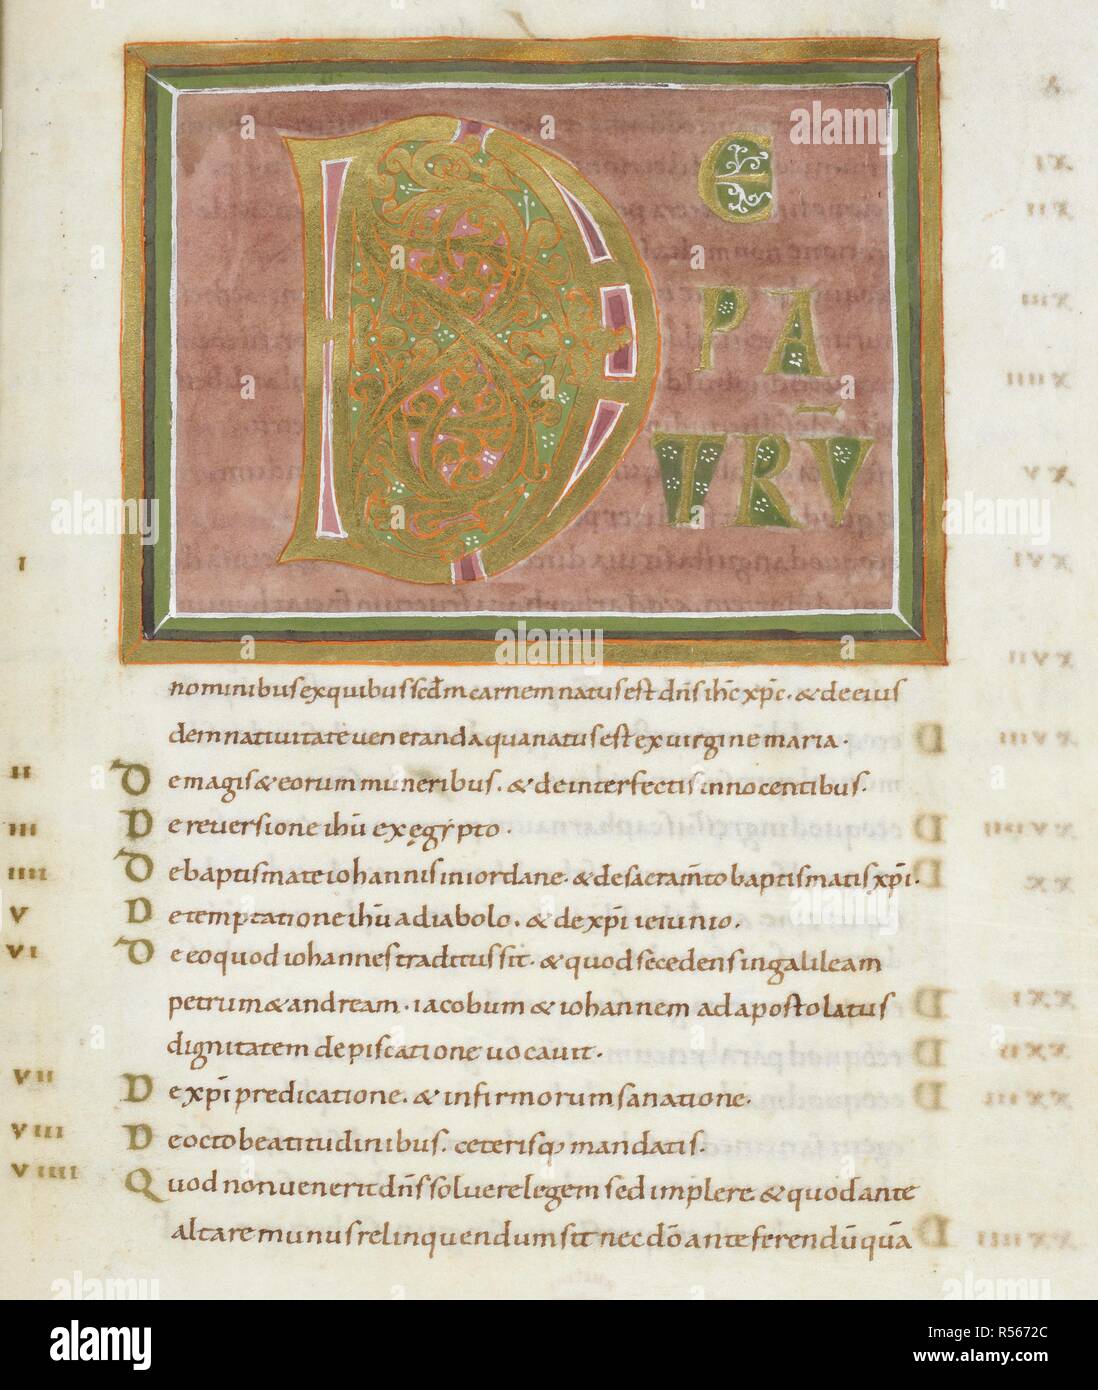 DE
PA
TRV̄
I nominibus ex quibus scd̄m carnem natus est dn̄s ihc̄ xp̄c. & de eius
dem natiuitate ueneranda qua natus est ex uirgine maria.
II De magis & eorum muneribus. & de interfectis innocentibus.
III De reuersione ihū ex ęgypto.
IIII De baptismate iohannis in iordane. & de sacram̄to baptismatis xp̄i.
V De temptatione ihū a diabolo. & de xp̄i ieiunio.
VI De eo quod iohannes traditus sit. & quod secedens in galileam
petrum & andream. iacobum & iohannem ad apostolatus
dignitatem de piscatione uocauit.
VII De xp̄i predicatione. & infirmorum sanatione.
VIII De octo beatitudinibus. ceterisq; mandatis.
VIIII Quod non uenerit dn̄s soluere legem sed implere & quod ante
altare munus relinquendum sit nec dō ante ferendū quā
alamy
Image ID: R5672C
www.alamy.com